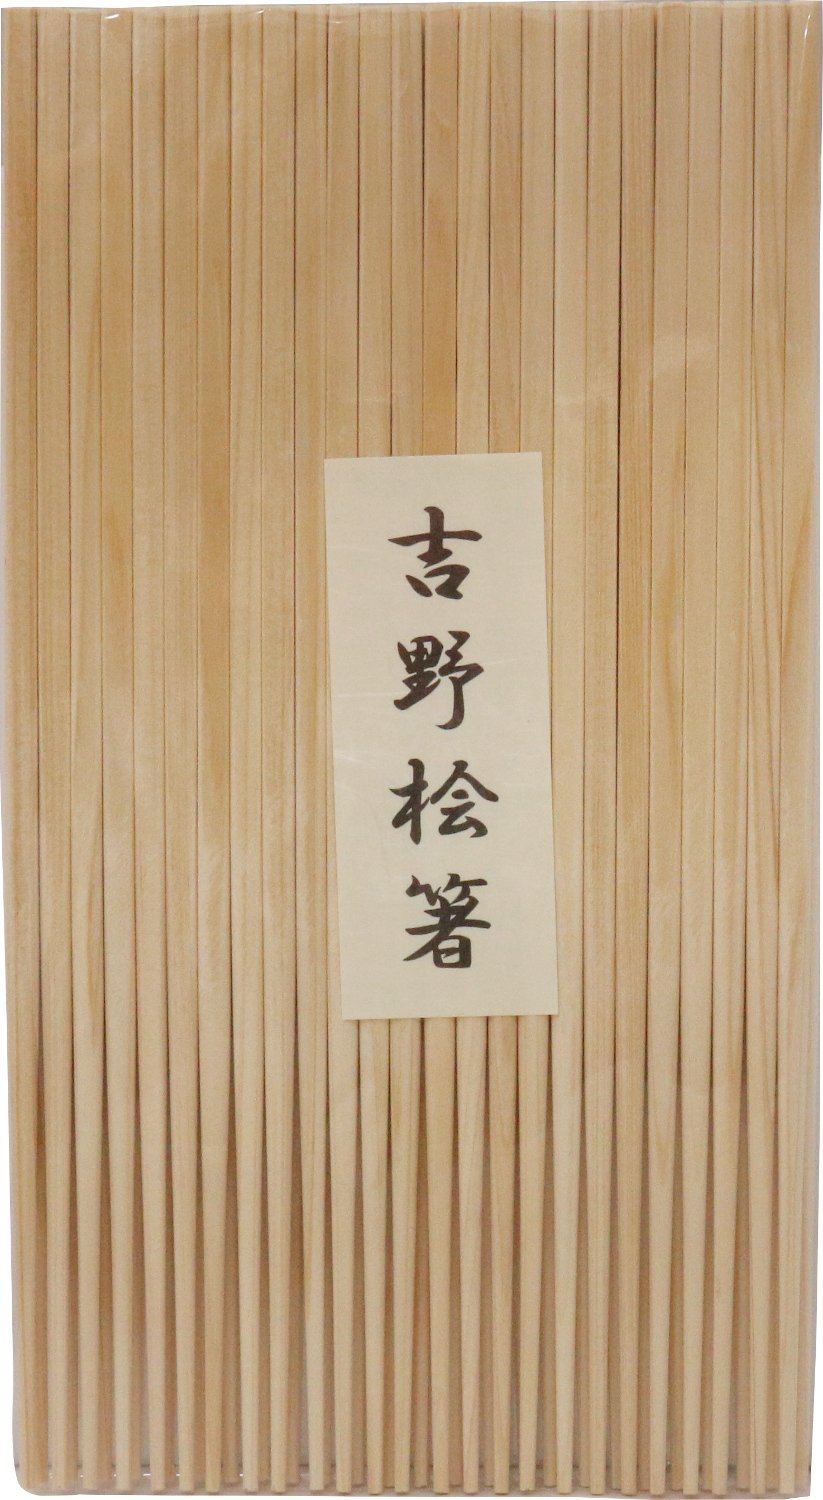 吉野桧箸